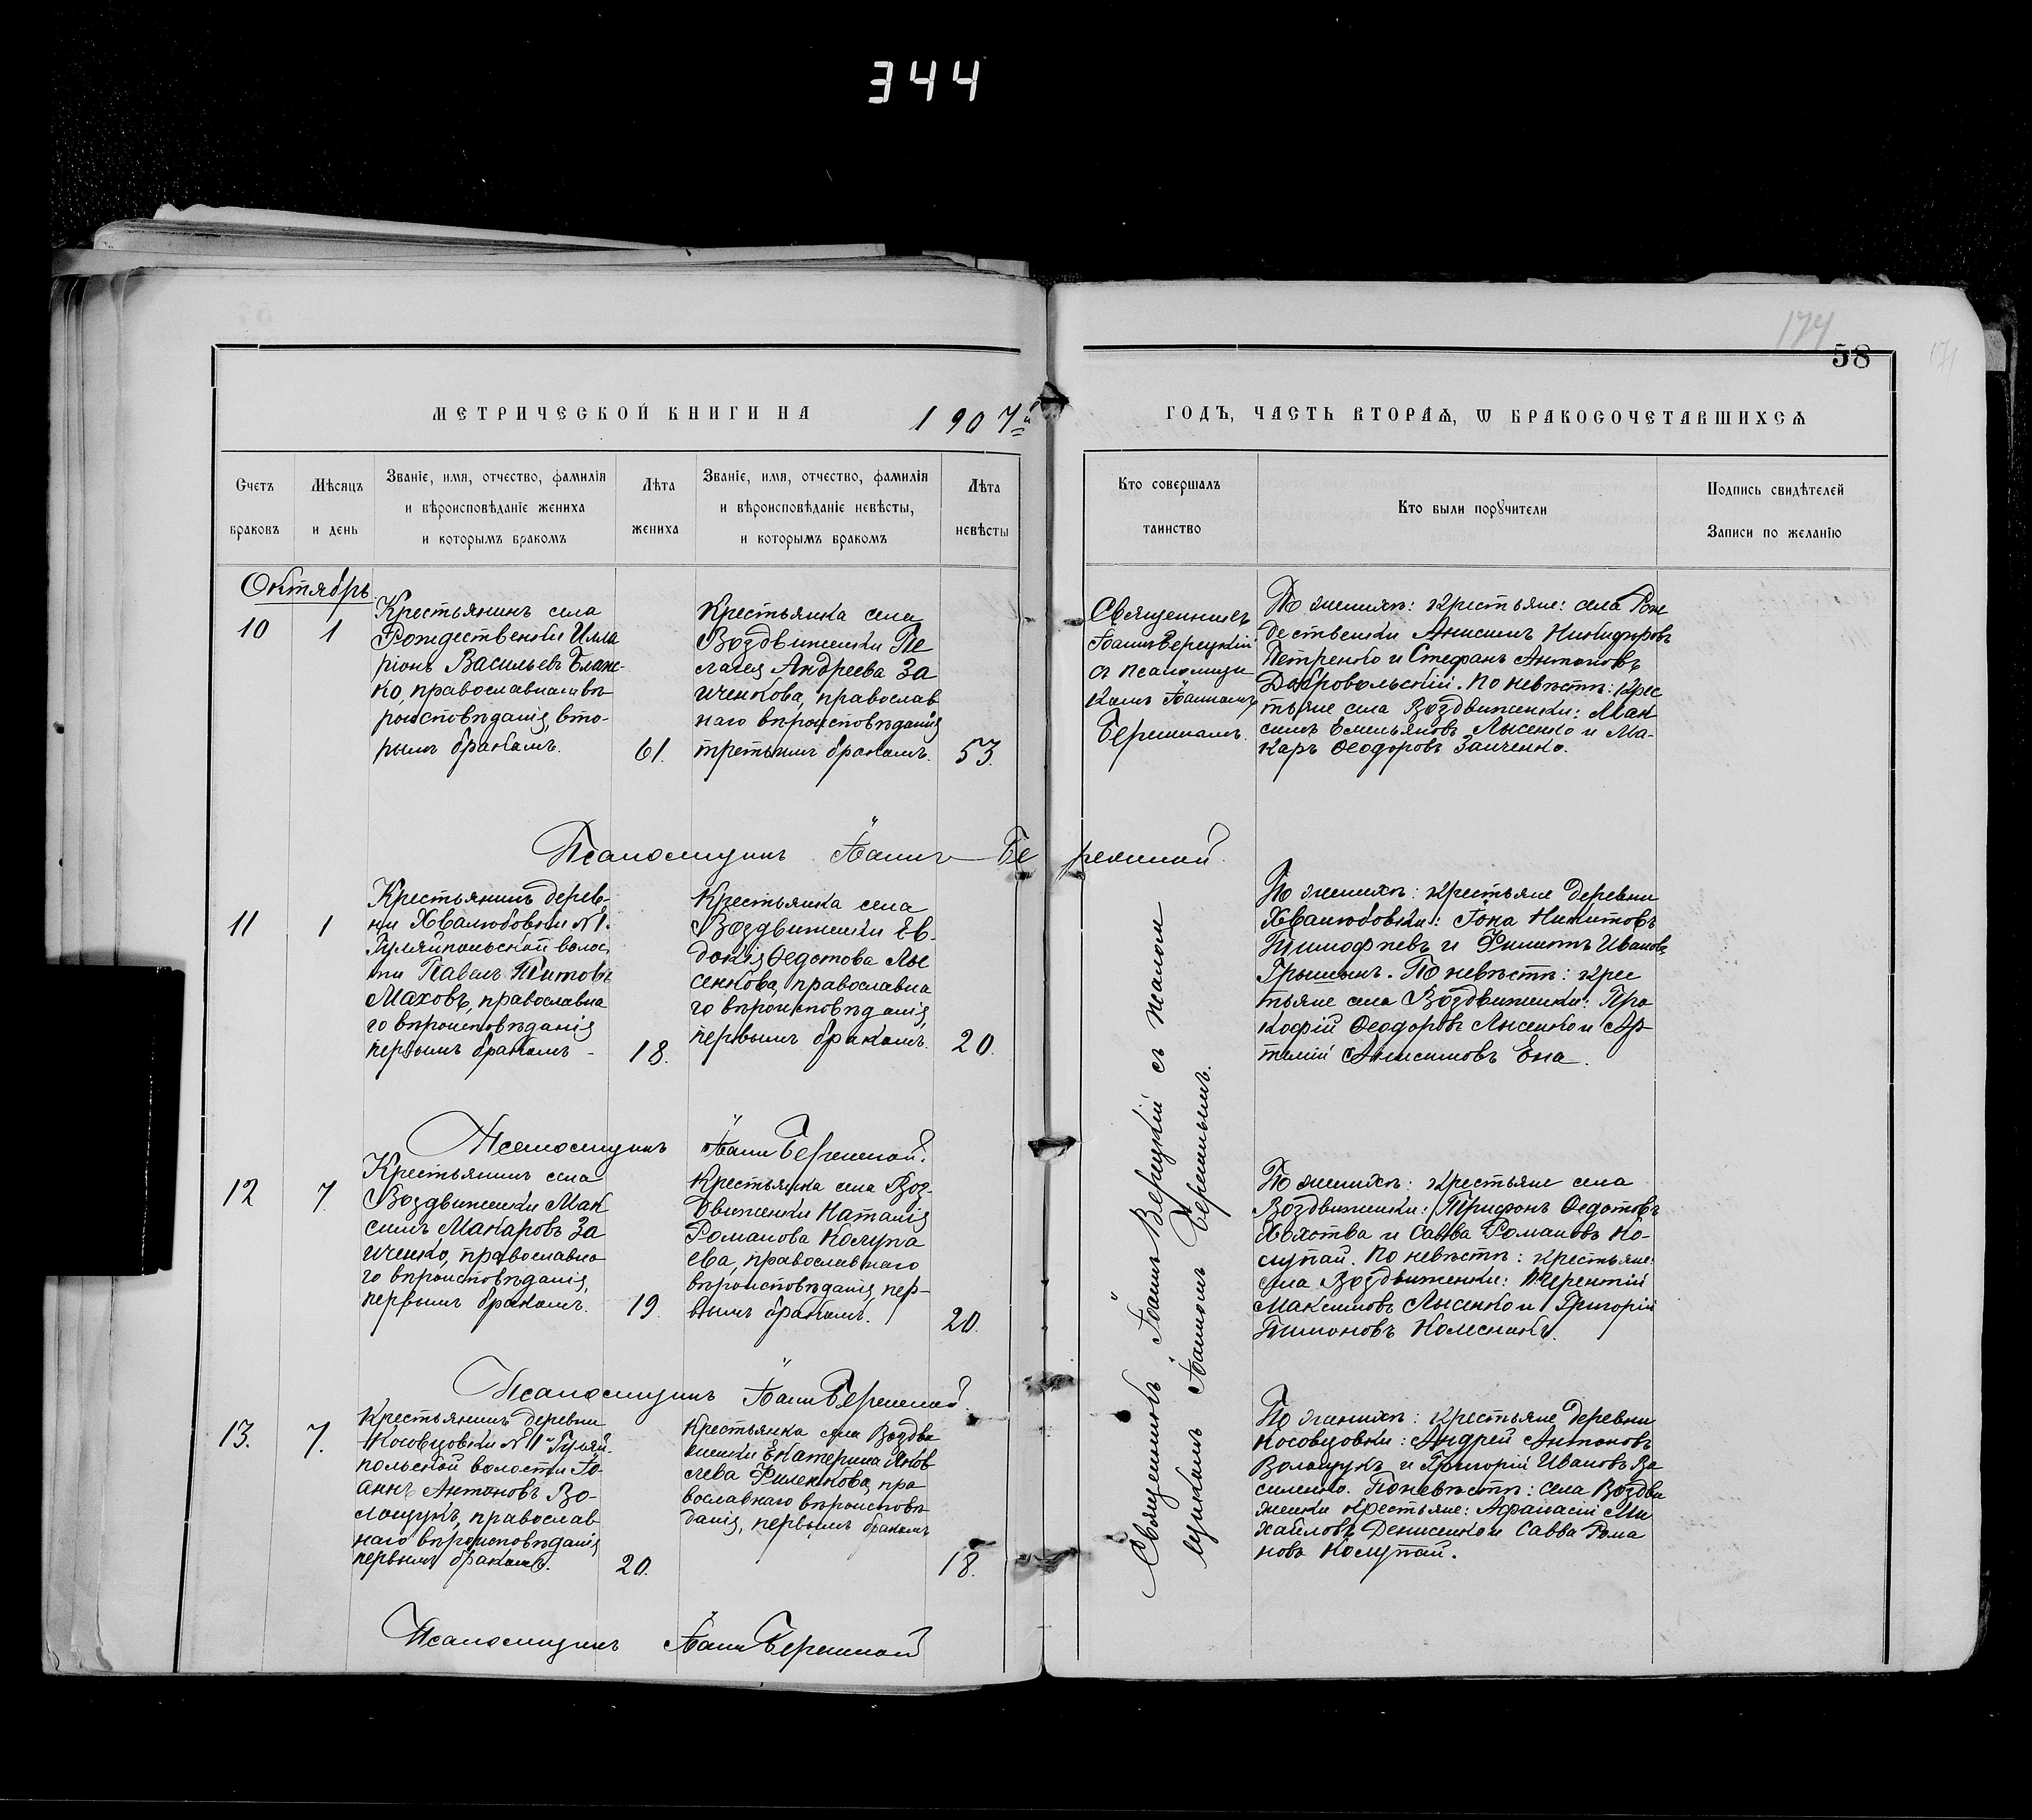 344
174
58
171
МЕТРИЧЕСКОЙ КНИГИ НА 1907й
ГОДЪ, ЧАСТЬ ВТОРАѦ, Ѡ БРАКОСОЧЕТАВШИХСѦ
Счетъ
браковъ
Мѣсяцъ
и день
Званіе, имя, отчество, фамилія
и вѣроисповѣданіе жениха
и которымъ бракомъ
Лѣта
жениха
Званіе, имя, отчество, фамилія
и вѣроисповѣданіе невѣсты,
и которымъ бракомъ
Лѣта
невѣсты
Кто совершалъ
таинство
Кто были порꙋчители
Подпись свидѣтелей
Записи по желанію
Октябрь
10
1
Крестьянинъ села
Рождественки Илла
ріонъ Васильевъ
ко, православнаго вѣ
роисповѣданія, вто-
рымъ бракомъ.
61.
Крестьянка села
Воздвиженки Пе
лагея Андреева За
иченкова, православ
наго вѣроисповѣданія
третьимъ бракомъ.
53.
Священникъ
Іоаннъ Верецкій
съ псаломщи
комъ Іоанномъ
Бережнымъ.
По женихѣ: крестьяне: села Рож
дественки Анисимъ Никифоровъ
Петренко и Стефанъ Антоновъ
Добровольскій. По невѣстѣ: крес
тьяне села Воздвиженки: Мак
симъ Емельяновъ Лысенко и Ма-
каръ Ѳеодоровъ Заиченко.
Псаломщикъ Іоаннъ Бережной.
11
1
Крестьянинъ дерев-
ни Хвалибовки №1.
Гуляйпольской волос
ти Павелъ Титовъ
Маховъ, православна
го вѣроисповѣданія
первымъ бракомъ -
18.
Крестьянка села
Воздвиженки Ев-
докія Ѳедотова Лы
сенкова, православна
го вѣроисповѣданія,
первымъ бракомъ.
20.
По женихѣ: крестьяне деревни
Хвалибовки: Іона Никитовъ
Тимофѣевъ и Филиппъ Ивановъ
По невѣстѣ: крес
тьяне села Воздвиженки: Про
кофій Ѳеодоровъ Лысенко и Ар-
темій Анисимовъ Ена.
Псаломщикъ Іоаннъ Бережной.
12
7.
Крестьянинъ села
Воздвиженки Мак
симъ Макаровъ За
иченко, православна
го вѣроисповѣданія,
первымъ бракомъ.
19.
Крестьянка села Воз-
движенки Наталія
Романова Колупа
ева, православнаго
вѣроисповѣданія, пер-
вымъ бракомъ.
20.
Священникъ Іоаннъ Верецкій съ псалом
щикомъ Іоанномъ Бережнымъ.
По женихѣ: крестьяне села
Воздвиженки: Трифонъ Ѳедотовъ
и Савва Романовъ Ко-
лупай. По невѣстѣ: крестьяне
села Воздвиженки: Терентій
Максимовъ Лысенко и Григорій
Тимоновъ Колесникъ.
Псаломщикъ Іоаннъ Бережной.
13.
7.
Крестьянинъ деревни
Косовцовки №1й Гуляй-
польской волости Іо-
аннъ Антоновъ Во-
лощукъ, православ
наго вѣроисповѣданія
первымъ бракомъ.
20.
Крестьянка села Воздви
женки Екатерина Яков
лева Филенкова, пра
вославнаго вѣроисповѣ
данія, первымъ бракомъ
18.
По женихѣ: крестьяне деревни
Косовцовки: Андрей Антоновъ
Волощукъ и Григорій Ивановъ Ва
силенко. По невѣстѣ: села Воздви
женки крестьяне: Афанасій Ми
хайловъ Денисенко и Савва Рома
новъ Колупай.
Псаломщикъ Іоаннъ Бережной